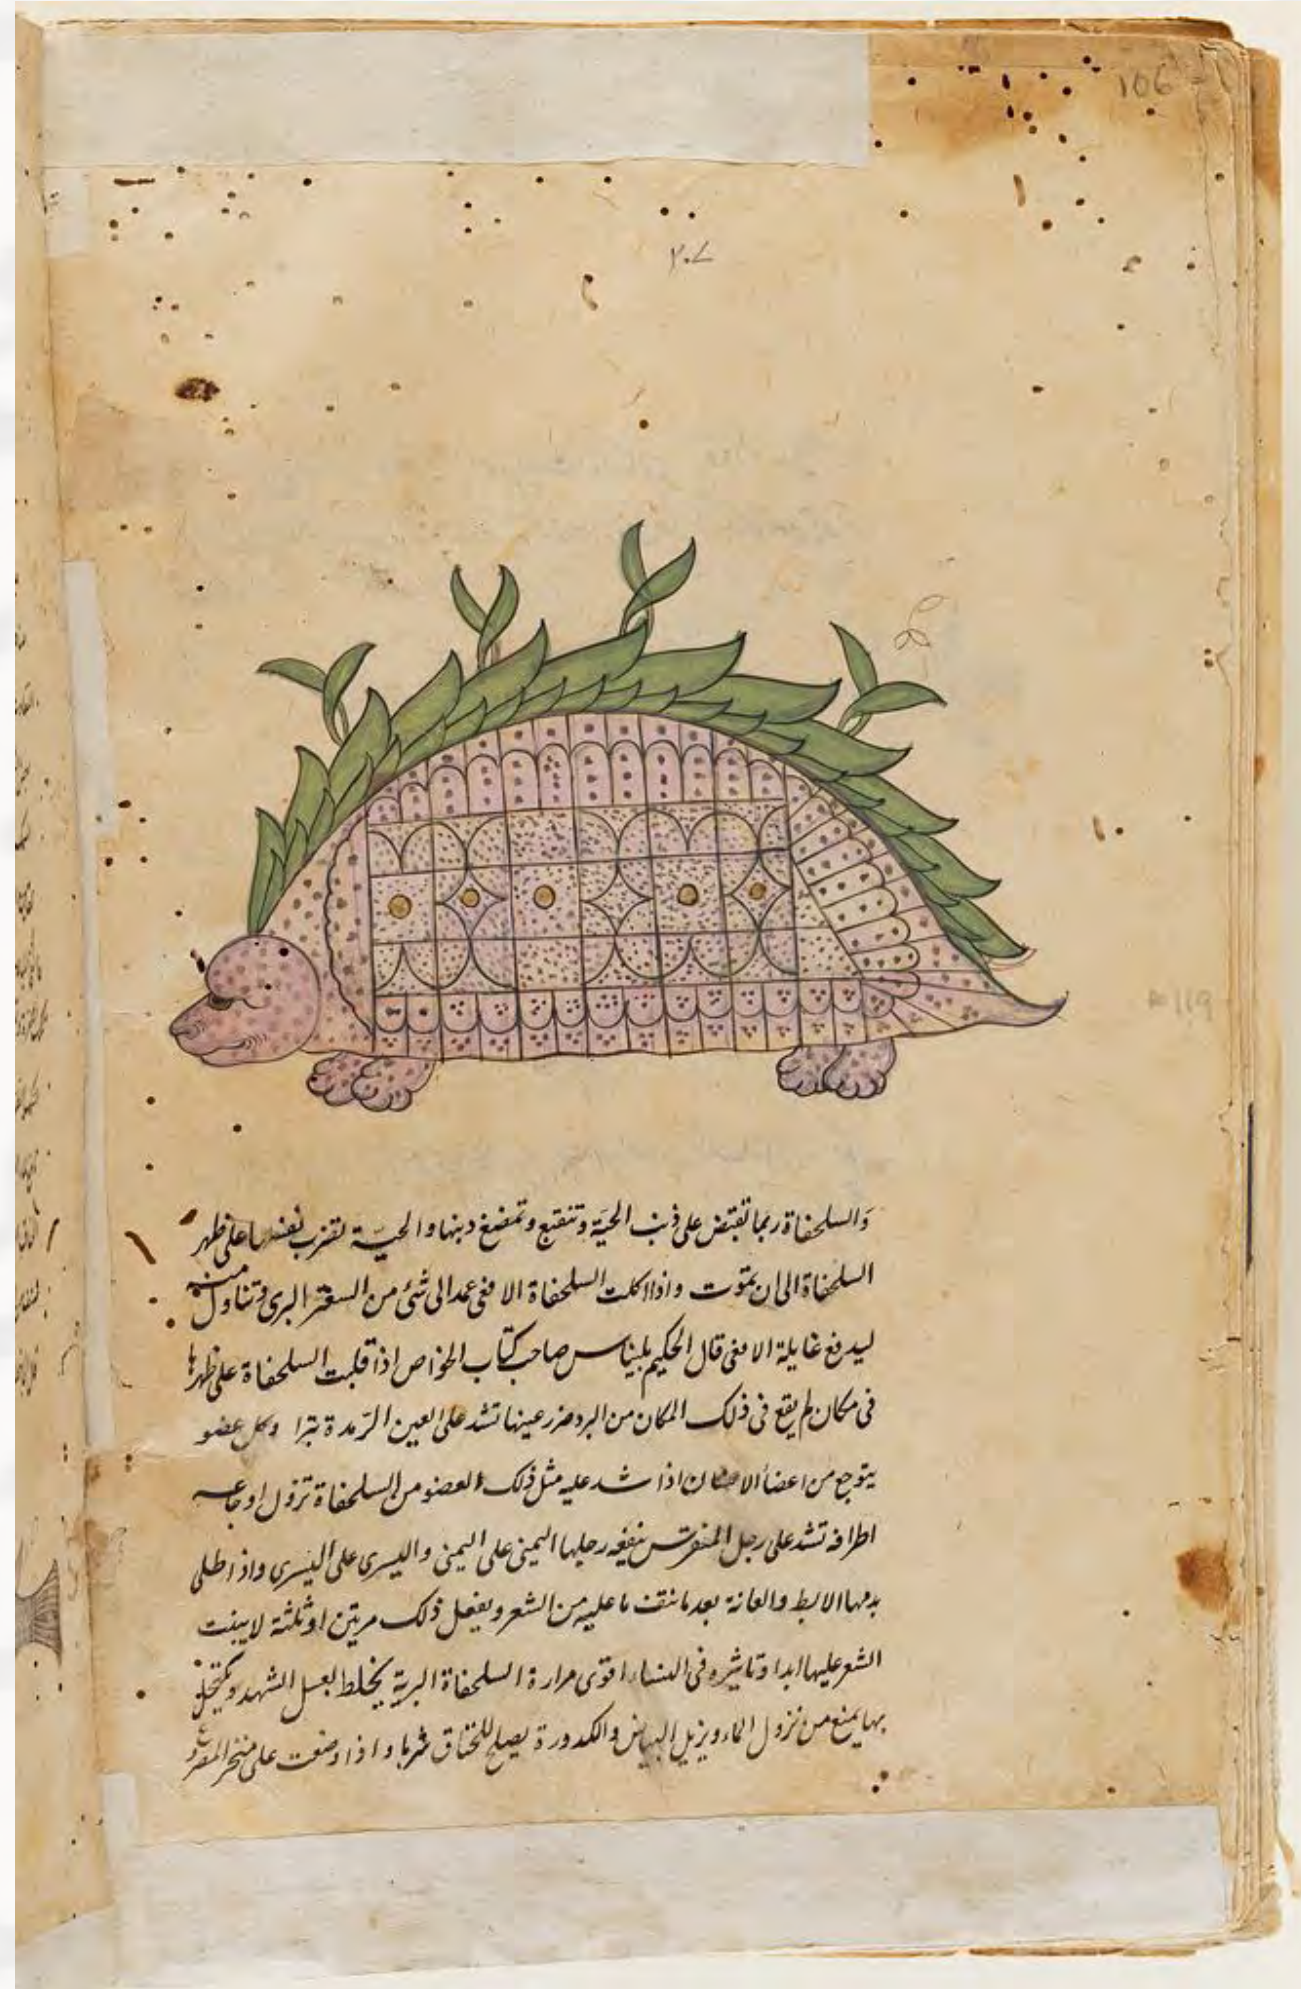 106
٢٠٧
والسلحفاة ربما تقبض على ذنب الحيّة وتنقبع وتمضغ ذنبها والحيّة تضرب بنفسها على ظهر
السلحفاة الى ان يموت واذا اكلت السلحفاة الافعى عمد الى شئ من السعتر البرى وتناول منه
ليدفع غايلة الافعى قال الحكيم بليناس صاحب كتاب الخواص اذا قلبت السلحفاة على ظهرها
فى مكان لم يقع فى ذلك المكان من البرد عينها تشد على العين الرمدة تبرا وكل عضو
يتوجع من اعضاء الانسان اذا شد عليه مثل ذلك العضو من السلحفاة تزول اوجاعه
اطرافه تشد على رجل المنقرس ينفعه رجلها اليمنى على اليمنى واليسرى على اليسرى واذا طلى
بدمها الابط والعانة بعد ما نتف ما عليه من الشعر ويفعل ذلك مرتين او ثلثة لا ينبت
الشعر عليها ابدا وتاثيره فى النساء اقوى مرارة السلحفاة البرية يخلط بعسل الشهد ويكتحل
بها يمنع من نزول الماء ويزيل البياض والكدورة يصلح للخناق شربا واذا وضعت على منخر المصروع